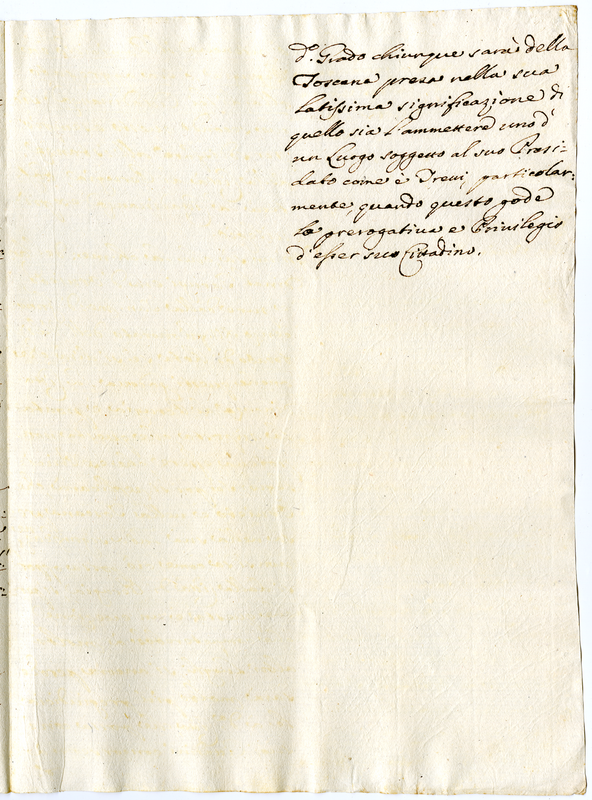 d.º Grado chiunque sarà della
Toscana presa nella sua
latissima significazione di
quello sia l'ammettere uno d'
un Luogo soggetto al suo Presi-
dato come è Trevi, particolar-
mente, quando questo gode
la prerogativa e Privilegio
d'esser suo Cittadino.